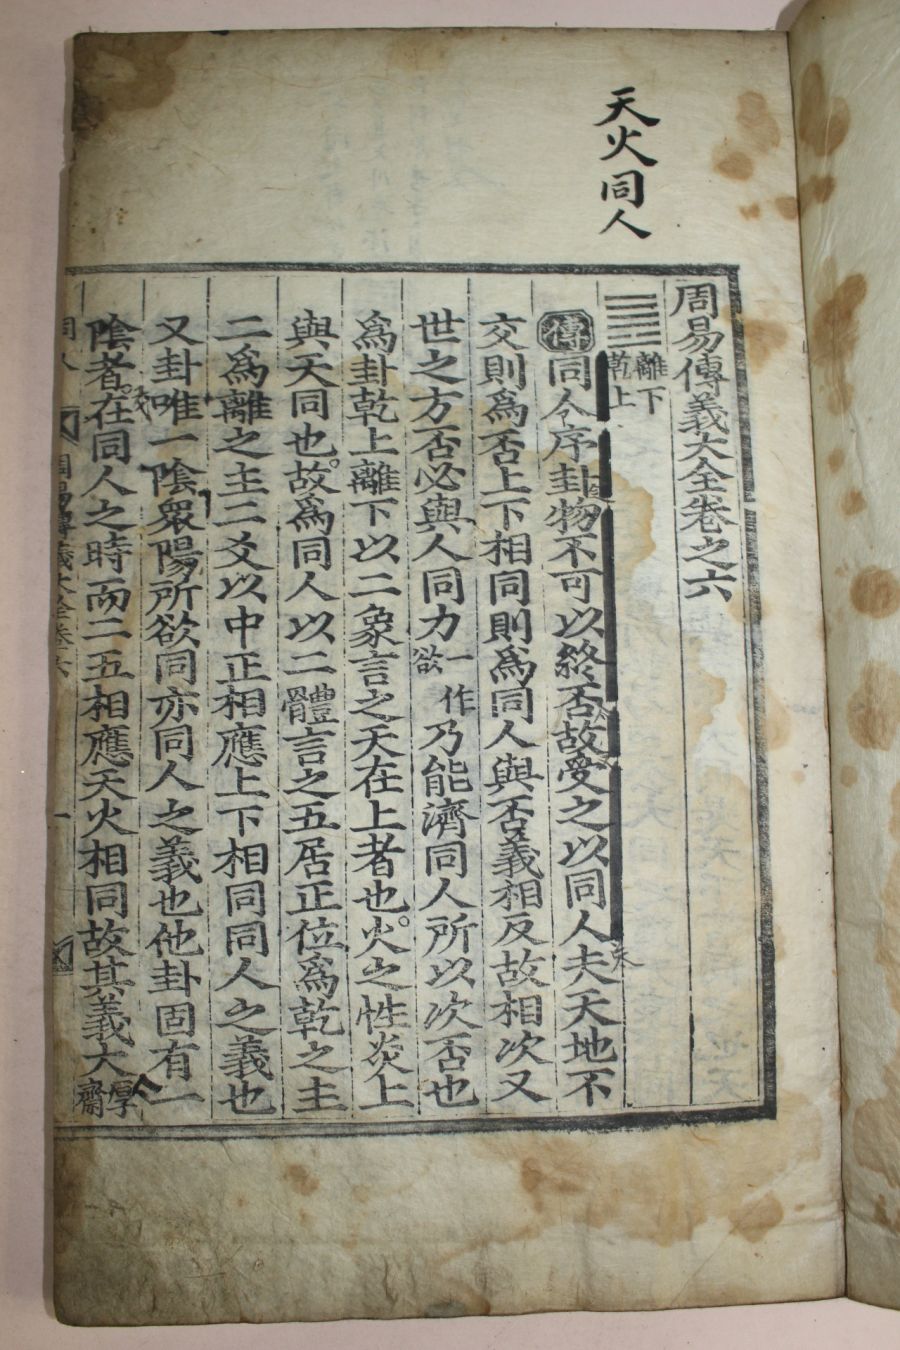 天火同人
周易傳義大全卷之六
離下
乾上
傳同人序卦物不可以終否故受之以同人夫天地不
交則爲否上下相同則爲同人與否義相反故相次又
世之方否必與人同力一作欲乃能濟同人所以次否也
爲卦乾上離下以二象言之天在上者也火之性炎上
與天同也故爲同人以二體言之五居正位爲乾之主
二爲離之主二爻以中正相應上下相同同人之義也
又卦唯一陰衆陽所欲同亦同人之義也他卦固有一
陰者在同人之時而二五相應天火相同故其義大厚齋
同人
周易傳義大全卷六
一